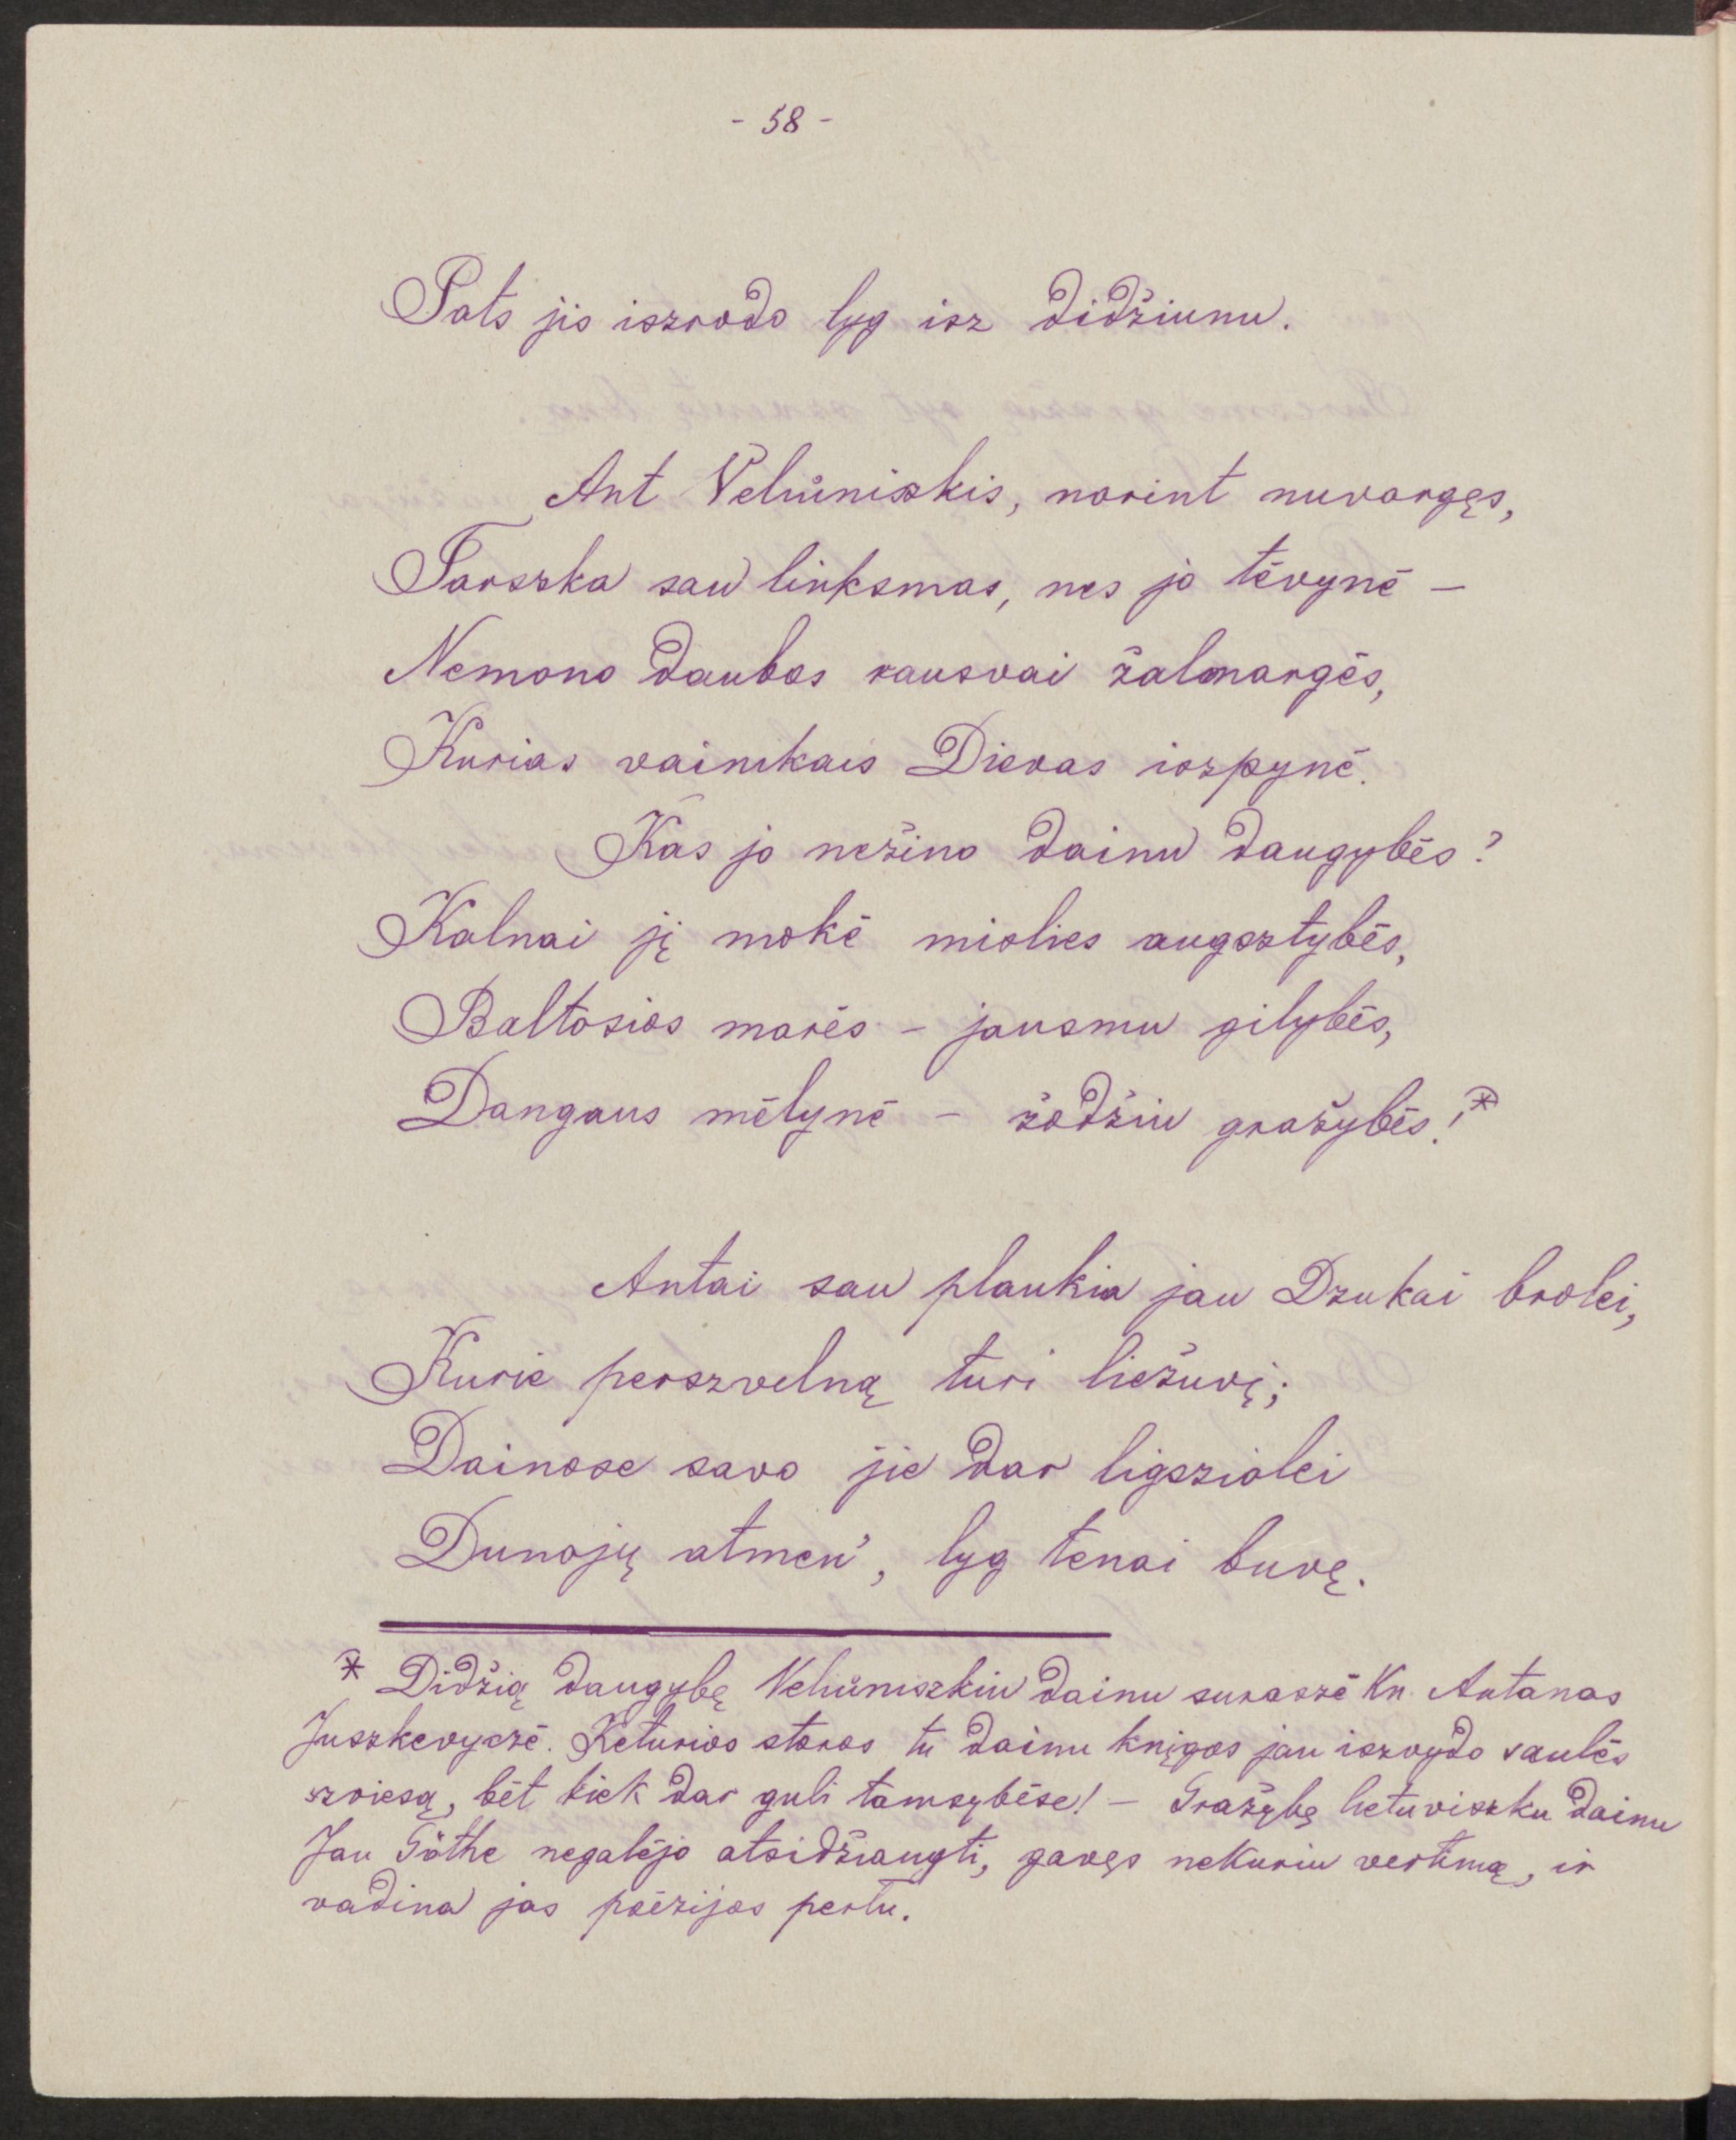 - 58 -
Pats jis iszrodo lyg isz didžiunu.
Ant Veliūniszkis, norint nuvargęs,
Tarszka sau linksmas, nes jo tėvynė —
Nemono daubos rausvai žalmargės,
Kurias vainikais Dievas iszpynė.
Kas jo nežino dainu daugybės?
Kalnai jį mokė mislies augsztybės,
Baltosios marės - jausmu gilybės,
Dangaus mėlynė - žodžiu gražybės!*
Antai sau plaukia jau Dzukai brolei,
Kurie perszvelną turi liežuvį;
Dainose savo jie dar ligsziolei
Dunojų atmen', lyg tenai buvę.
* Didžią daugybę Veliūniszkiu dainu suraszė Kn. Antanas
Juszkevyczė. Keturios storos tu dainu knįgos jau iszvydo saulės
szviesą, bėt kiek dar guli tamsybėse! - Gražybę lietuviszku dainu
Jau Göthe negalėjo atsidžiaugti, gavęs nekuriu vertimą, ir
vadina jas poėzijos perlu.